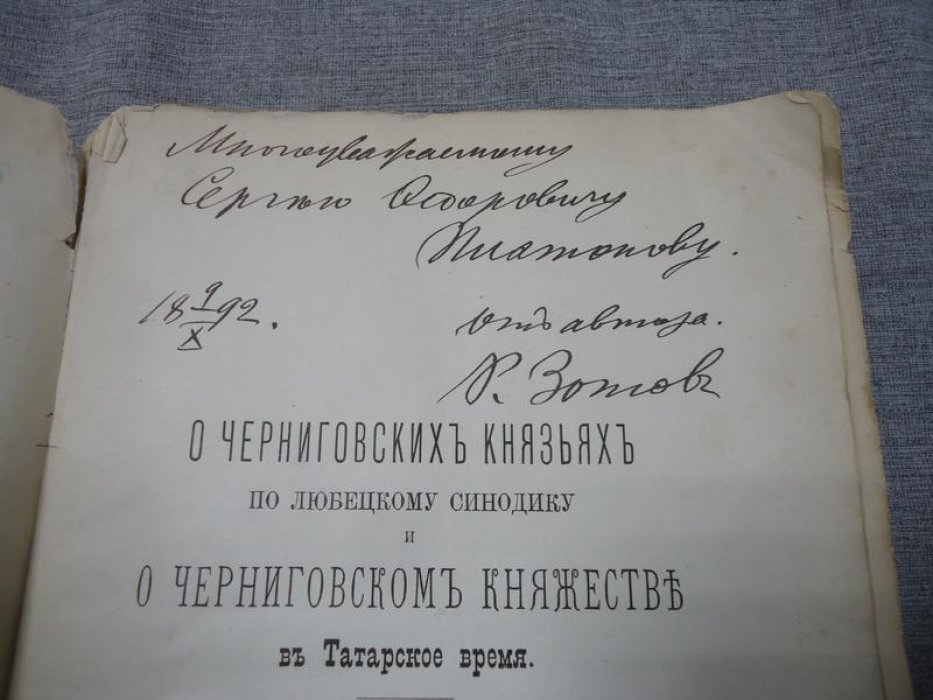 Многоуважаемому
Сергѣю Ѳедоровичу
Платонову.
18 9/X 92.
отъ автора.
Р. Зотовъ
О ЧЕРНИГОВСКИХЪ КНЯЗЬЯХЪ
ПО ЛЮБЕЦКОМУ СИНОДИКУ
И
О ЧЕРНИГОВСКОМЪ КНЯЖЕСТВѢ
въ Татарское время.